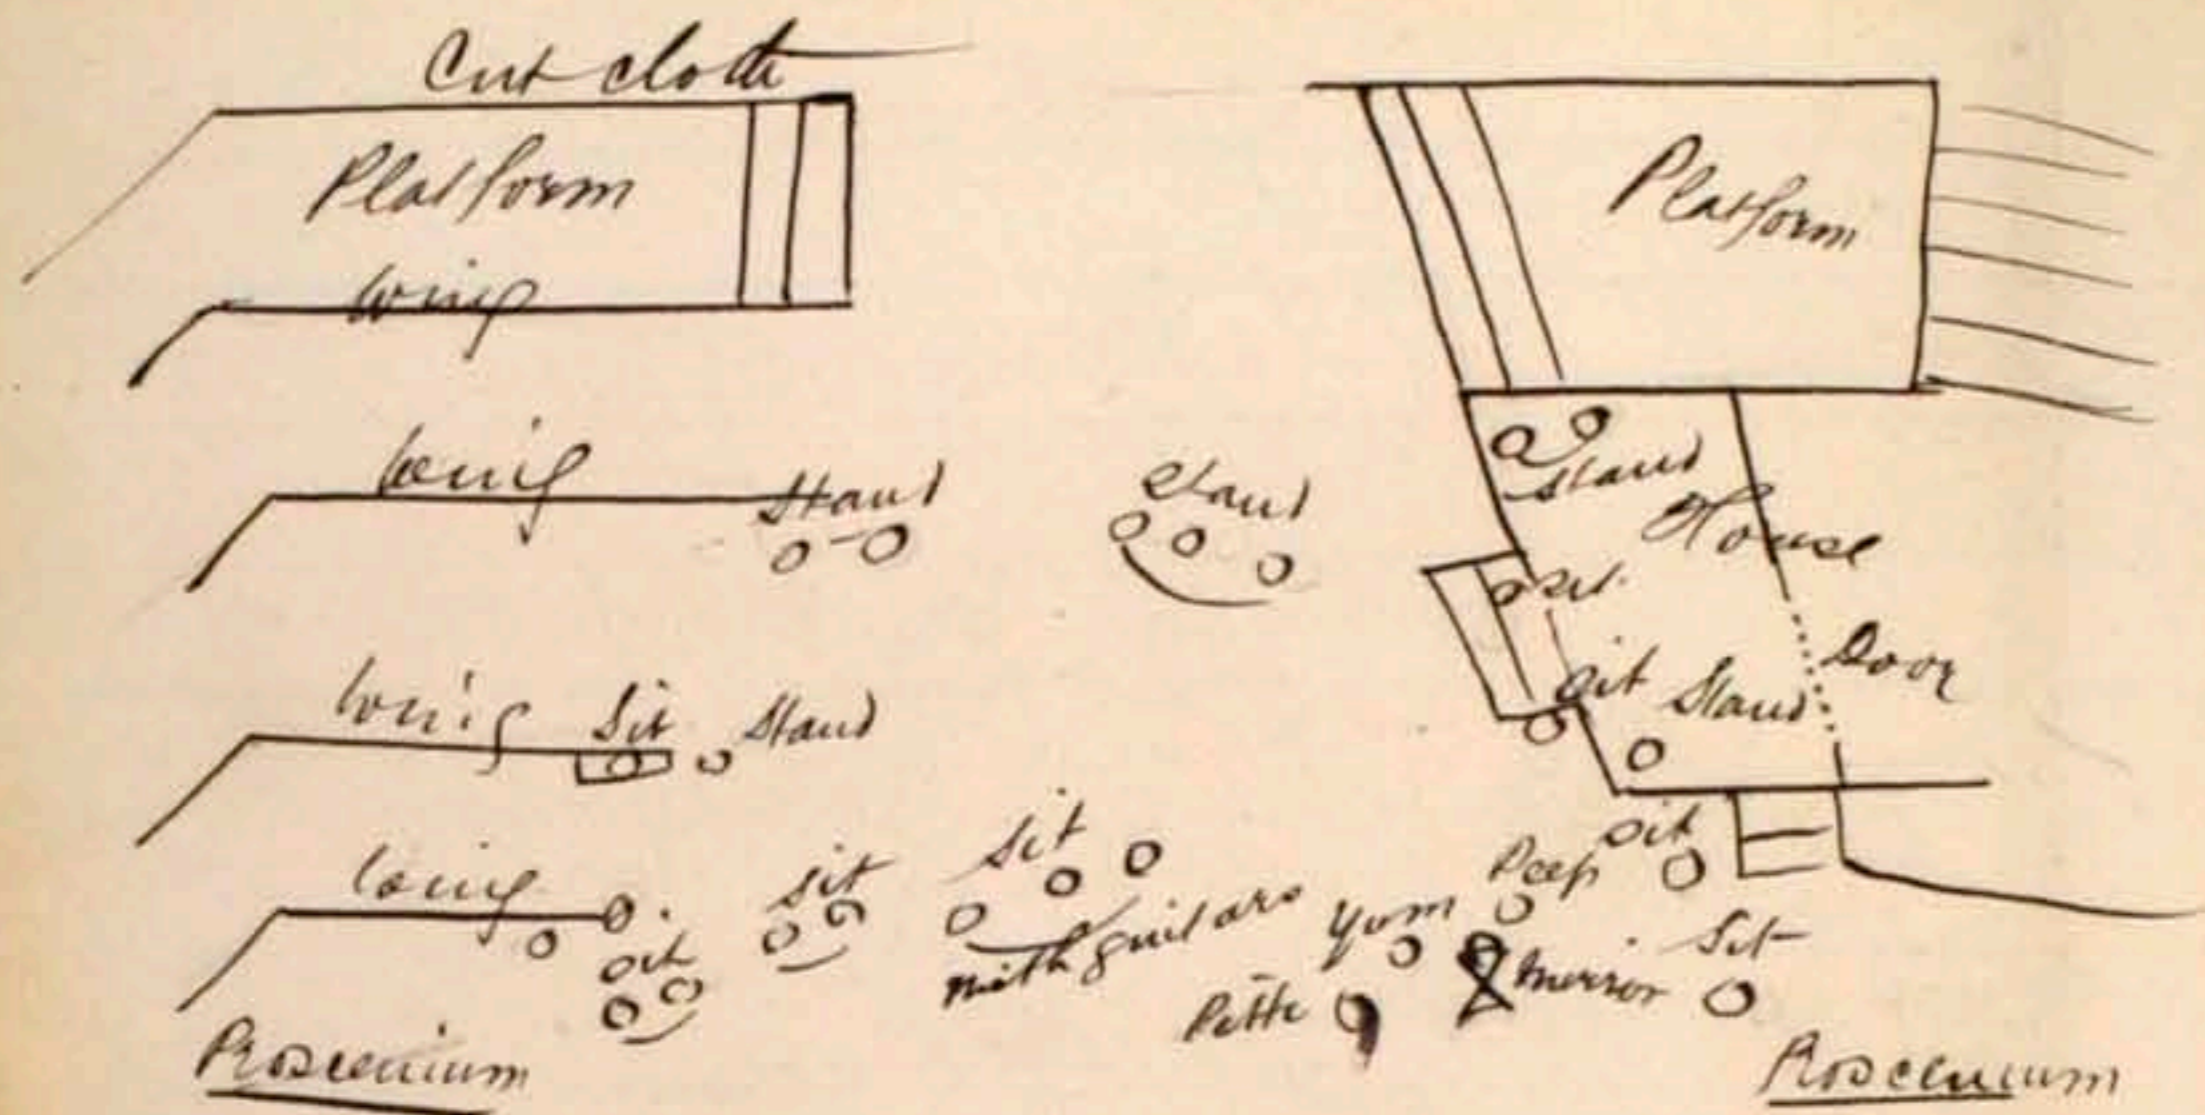 Cut cloth
Platform
Platform
wing
wing
Stand
Stand
Stand
House
sit
Door
wing
Sit
Stand
Sit
Stand
wing
sit
sit
Sit
with guitars
Yum
Peep
sit
Pitti
Mirror
Sit
Proscenium
Proscenium